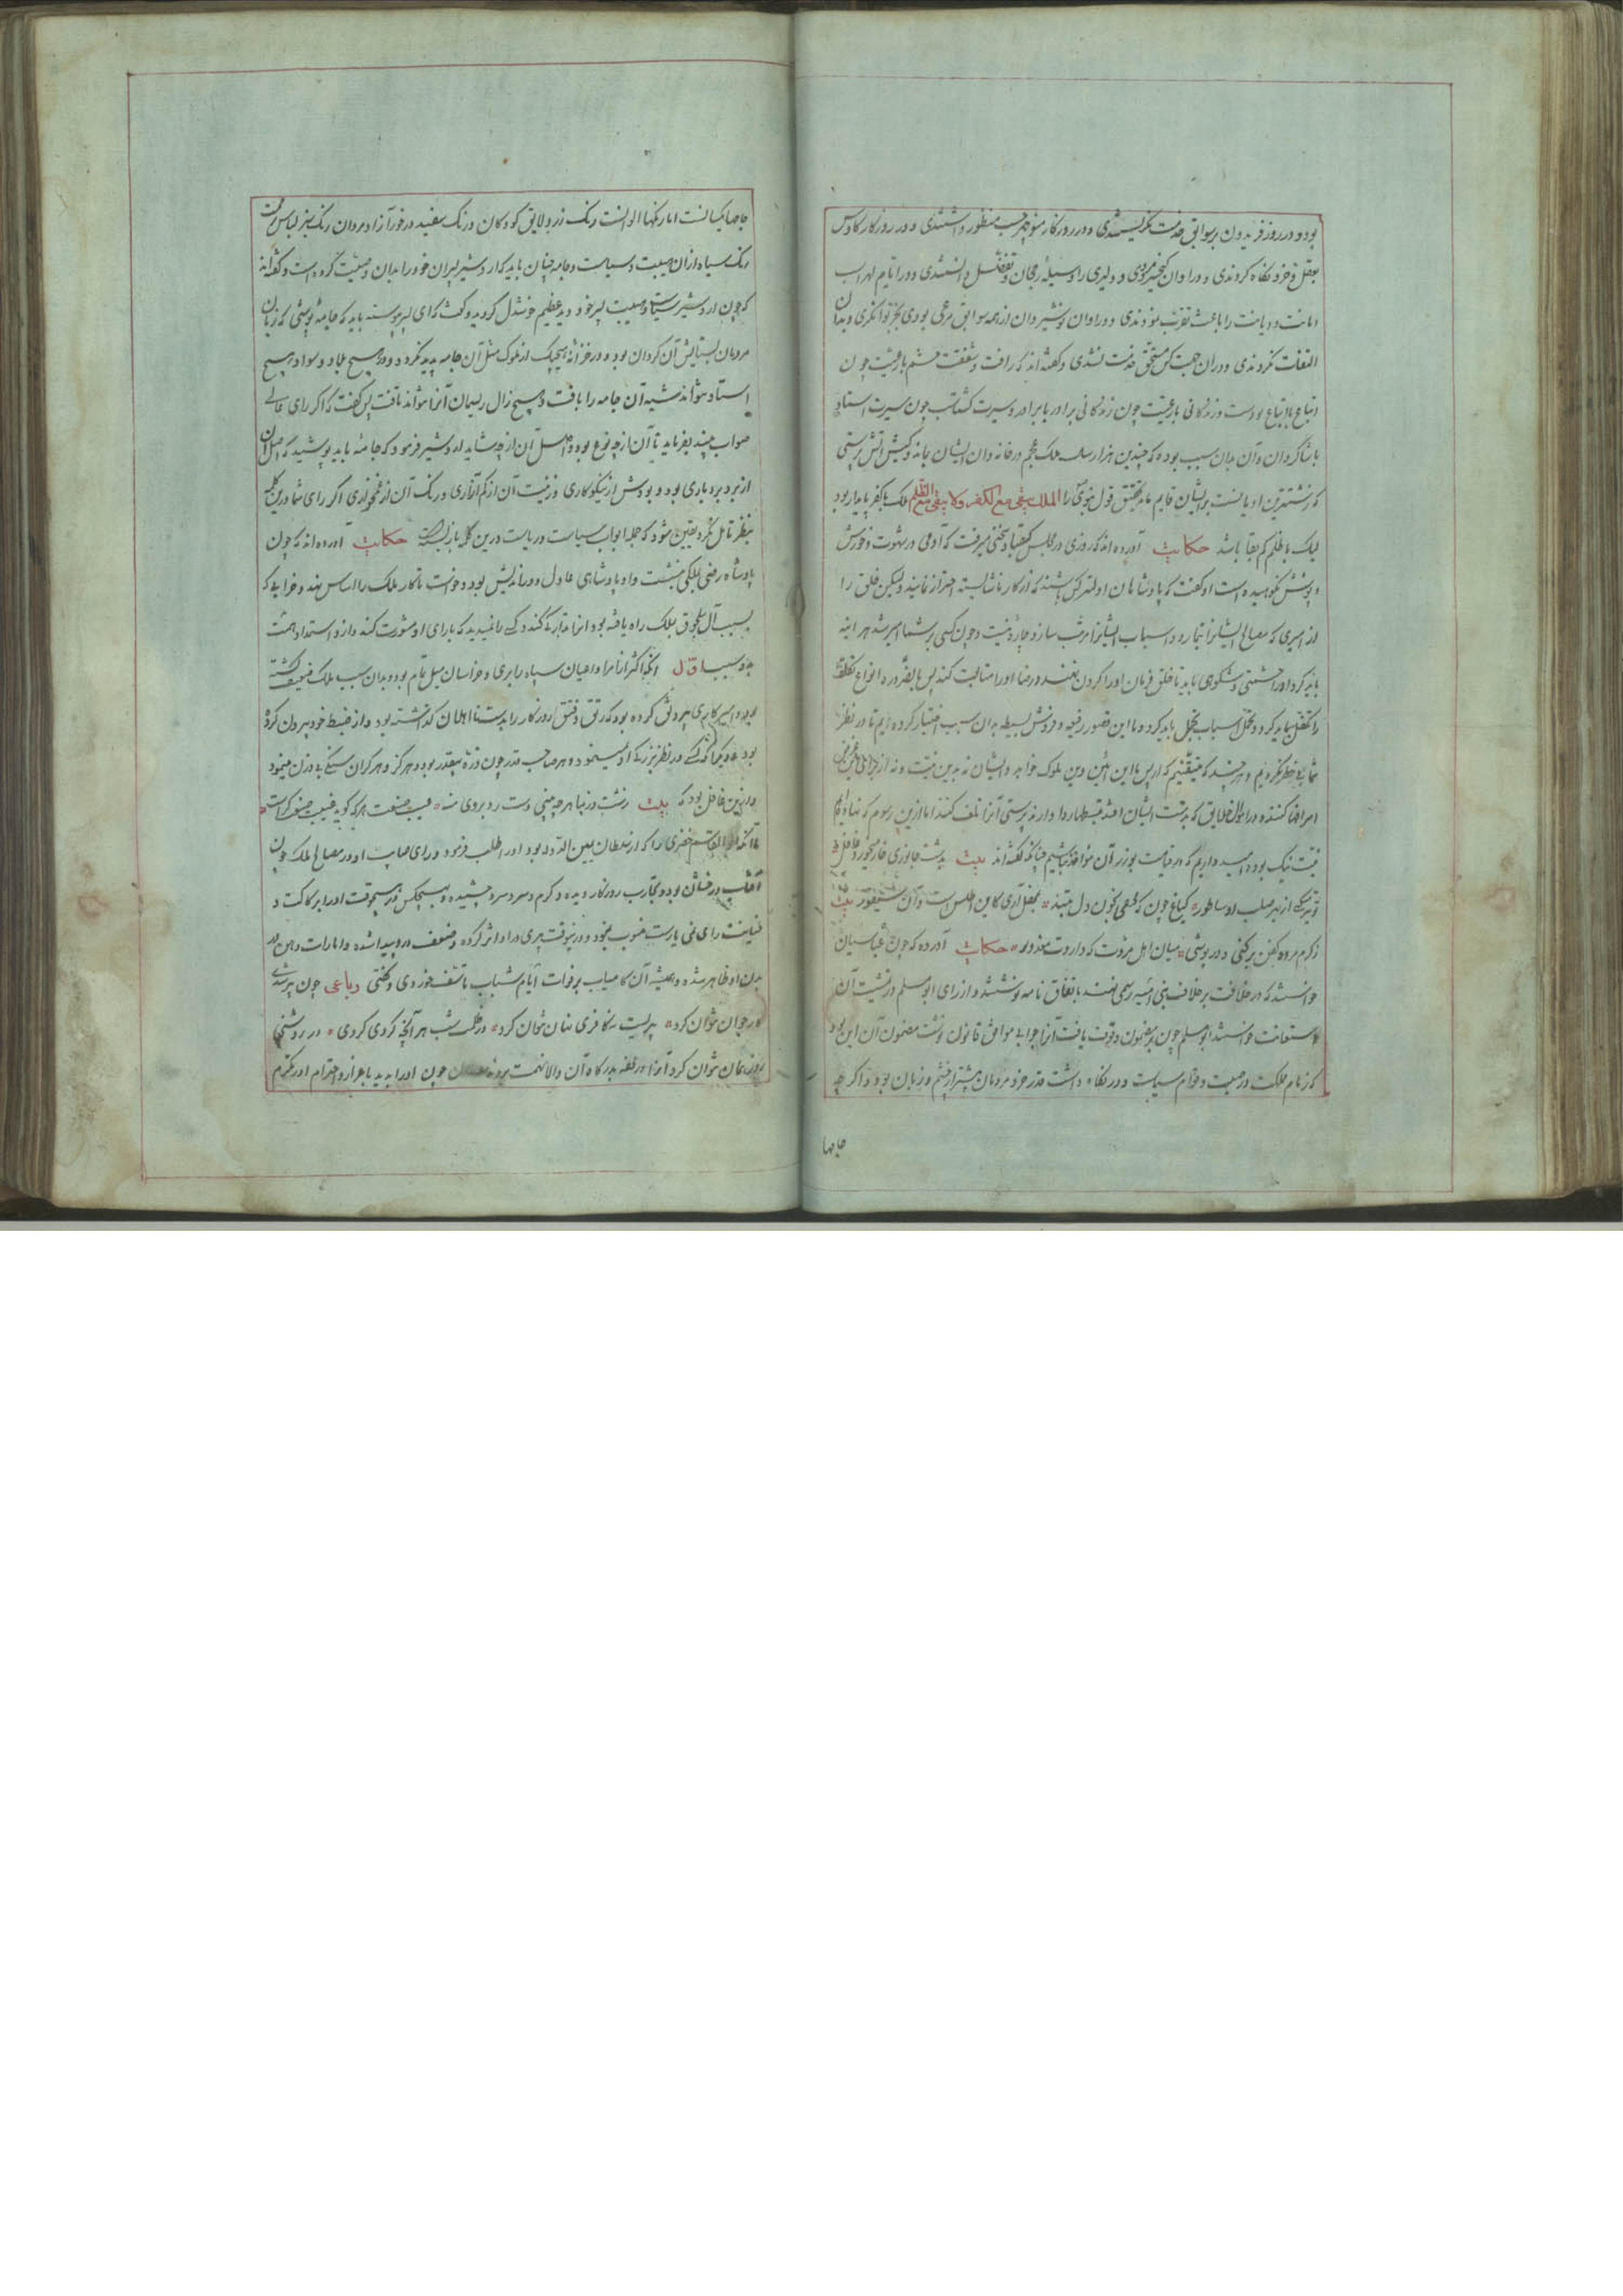 بود و در روز فریدون بر سوابق خدمت نگریستندی و در روزکار منوچهر حسب منظور داشتندی و در روزکار کاوس
بعقل و خرد نکاه کردندی و در اوان کیخسرو مردی و دلیری را وسیله رجحان و تفضل دانستندی و در ایام لهراسب
امانت و دیانت را باعث تقرب نمودندی و در اوان نوشیروان از همه سوابق مرعی بودی بجز توانکری و بدان
التفات نکردندی و در ان کس مستحق خدمت نشدی و کفته اند که رافت و شفقت حشم با رعیت چون
اتباع با اتباع بود است و زندکانی با رعیت چون زندکانی برادر با برادر و سیرت کتاب چون سیرت استاد
با شاکردان و آن بدان سبب بوده که چندین هزار سال ملک عجم در خاندان ایشان بماند و کیش آتش پرستی
که زشت‌ترین ادیانست بر ایشان قایم ماند بتحقیق قول نبوی را الملک یبقی مع الکفر ولا یبقی مع الظلم ملک با کفر پایدار بود
لیک با ظلم کم بقا باشد حکایت آورده اند که روزی در مجلس کیقباد سخنی میرفت که آدمی در شهوت و خورش
و پوشش نکوهیده است او کفت که پادشاهان اولیتر کس باشند که از کار ناشایسته احتراز نمایند ولیکن خلق را
از امیری که مصالح ایشانرا تیمار دارد و اسباب ایشانرا مرتب سازد چاره نیست و چون کسی بر شما امیر شد هر اینه
باید کرد او را حشمتی و شکوهی باید تا خلق فرمان او را کردن نهند و رضا او را متابعت کنند پس بالضروره انواع تکلف
را تکفل باید کرد و تحمل اسباب تجمل باید کرد و ما این قصور رفیعه و فروش بسیطه بدان سبب اختیار کرده ایم تا در نظر
شما بی خطر نکردیم و هر چند که متیقنیم که از پس ما این آئین دین ملوک خواهد و ایشان نه بدین نیت
اسراف کنند و در اموال خلایق که بدست ایشان افتد تبسط روا دارند بپرستی آنرا تلف کنند اما ازین رسوم که نهاده ایم
نیت نیک بوده امید داریم که در قیامت بوزر آن مؤاخذ نباشیم چنانکه کفته اند بیت
ز کرم مرده کفن برکنی و در پوشی میان اهل مروت که داردت معذور حکایت آورده که چون عباسیان
خواستند که در خلافت بر خلاف بنی امیه رسمی نهند باتفاق نامه نوشتند و از رای ابو مسلم در نشیت آن
استعانت خواستند ابو مسلم چون بر مضمون وقوف یافت آنرا جوابی موافق قانون نوشت مضمون آن این بود
که زمام مملکت در هیبت و قوام سیاست و در نکاه داشت قدر خود مردمان بیشتر از چشم و زبان بود و اکر چه
جامها
جامها یکیانست اما رنکها الوانست رنک زرد لایق کودکان و رنک سفید در خور آزاد مردان رنک سبز لباس
رنک سیاه از ان هیبت و سیاست و جامه چنان باید که اردشیر پسران خود را بدان وصیت کرده است و کفته اند
که چون اردشیر سیاست و هیبت پسر خود دید عظیم خوشدل کردید و کفت که ای پسر پیوسته باید که جامه پوشی که زبان
مردمان بستایش آن کردان بود و در خزانه هیچیک از ملوک مثل آن جامه پدید نکردد و در هیچ بلاد و سواد هیچ
استاد نتواند شبه آن جامه را بافت و هیچ زال ریسمان آنرا نتواند تافت پس کفت که اکر رای عالی
صواب بیند بفرماید تا آن از چه نوع بود و اصل آن از چه شاید اردشیر فرمود که جامه باید پوشید که اصل آن
از برد بردباری بود و پودش از نیکوکاری و زینت آن از کم آزاری و رنک آن از غمخواری اکر رای شما درین کلمه
بنظر تامل نکرد یقین شود که جمله ابواب سیاست و ریاست درین کلمه باز بسته است حکایت آورده اند که چون
پادشاه رضی بملکی بنشست و او پادشاهی عادل و دوراندیش بود و خواست تا کار ملک را اساس نهد و خرابی که
بسبب آل سلجوق بملک راه یافته بود آنرا تدارک کند و کسی را نمیدید که با رای او مشورت کند و ازو استمداد همت
بدو سبب اول آنکه اکثر از امرا و اعیان سپاه را بری و خراسان میل تام بود و بدان سبب ملک ضعیف کشته
بود و کرده بود که رتق و فتق روزکار را بدست نا اهلان کذاشته بود و از ضبط خود بیرون کرده
بود و دیکر آنکه کسی در نظر بزرکی او نمینمود و هر صاحب قدر چون ذره بیقدر بود و هرکز و هر کران سنکی بی وزن مینمود
و ازین غافل بود که بیت زشت و زیبا هر چه بینی دست رد بر وی منه عیب صنعت هر که کوید غیبت صنعتکر است
تا آنکه ابو القاسم خضری را که از بود او را طلب فرمود و رای صایب او در مصالح ملک چون
آفتاب درخشان بود و تجارب روزکار دیده و کرم و سرد چشیده و هیچکس در هیچوقت او را
خیانت رای منسوب نمیکرد و در نیوقت پیری در او اثر کرده و ضعف درو پیدا شده و امارات وهن در
بدن او ظاهر شده و همیشه آن کامیاب بر فوات ایام شباب تاسف خوردی و کفتی رباعی چون پیر شدی
کار جوان نتوان کرد پیریست نه کافری نهان نتوان کرد در ظلمت شب هر آنچه کردی کردی در روشنی
روز همان نتوان کرد آنرا در محفه بدرکاه آن والا نهمت بردند چون او را بدید باعزاز و احترام او را مکرم